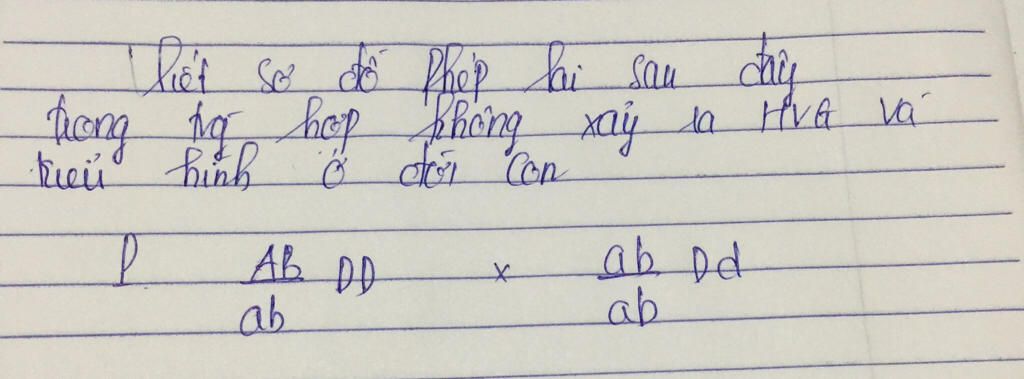 Viết sơ đồ phép lai sau đây
trong tg hợp không xảy ra HVG và
kiểu hình ở đời con
P AB DD x ab Dd
ab ab